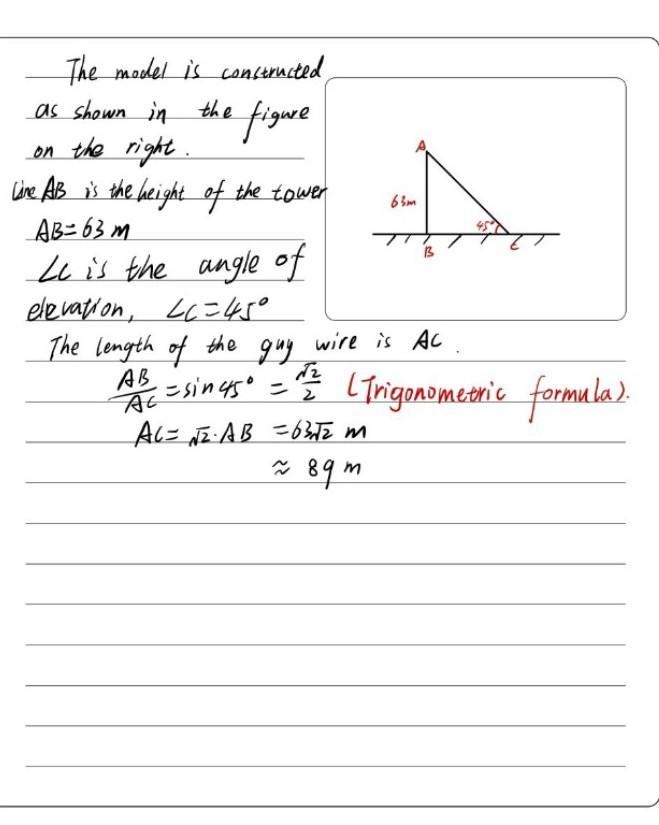 The model is constructed
as shown in the figure
on the right.
Line AB is the height of the tower
AB=63 m
∠C is the angle of
elevation, ∠C=45°
A
63m
45°
B
C
The length of the guy wire is AC.
AB/AC = sin45° = √2/2 (Trigonometric formula).
AC= √2·AB =63√2 m
≈ 89 m